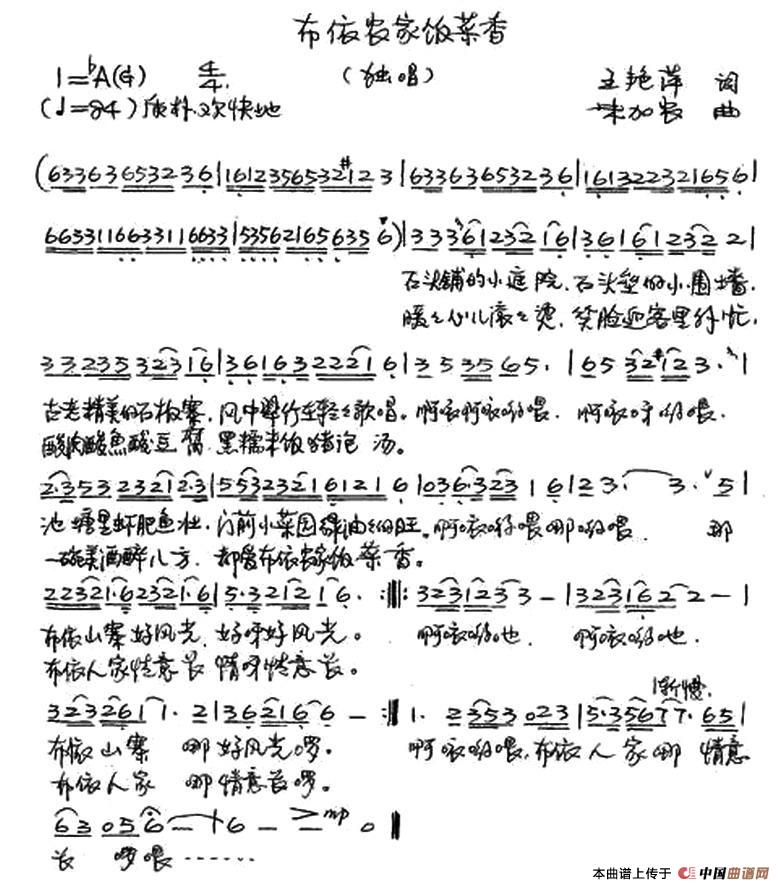 布依农家饭菜香
1=♭A(G) 4/4 (独唱) 王艳萍 词
(♩=84)质朴.欢快地 加农 曲
(6336365323 6|161235653 2#12 3|6336365323 6|161322321656|
66331166331166 33|5356216563 5 6)|3 3 3 6 1 2 3 2 1 6|3 6 1 6 1 2 3 2 2|
石头铺的小庭院,石头垒的小围墙,
暖暖心儿滚滚烫,笑脸迎客里外忙,
3 3 2 3 5 3 2 3 1 6|3 6 1 6 3 2 2 2 1 6|3 5 3 5 6 5.|6 5 3 2 #1 2 3.|
古老精美的石板寨,风中翠竹在轻轻歌唱。啊哝啊哝哟喂,啊哝呀哟喂,
酸肉酸鱼酸豆腐,黑糯米饭猪泡汤。
2·3 5 3 2 3 2 1 2·3|5 5 3 2 3 2 1 6 1 2 1 6|0 3 6·3 2 3 1 6|2 3. 3. 5|
池塘里虾肥鱼壮,门前小菜园绿油油的旺。啊哝哟喂哪哟喂 那
一碗美酒醉八方,都夸布依农家饭菜香。
2 2 3 2 1·6 2 3 2 1·6|5·3 2 1 2 1 6. :‖: 3 2 3 1 2 3 3 —|3 2 3 1 6 2 2 —|
布依山寨好风光,好呀好风光。 啊哝哟也, 啊哝哟也,
布依人家情意长 情呀情意长。
渐慢.
3 2 3 2 6 1 1. 2|3 6 2 1 6 6 — :‖ 1. 2 3 5 3 0 2 3|5·3 5 6 7 7. 6 5|
布依山寨 哪好风光啰。 啊哝哟喂,布依人家哪 情意
布依人家 哪情意长啰。
6 3 0 5 6 — 6 — > — mp 0 ‖
长 啰喂……
本曲谱上传于 中国曲谱网